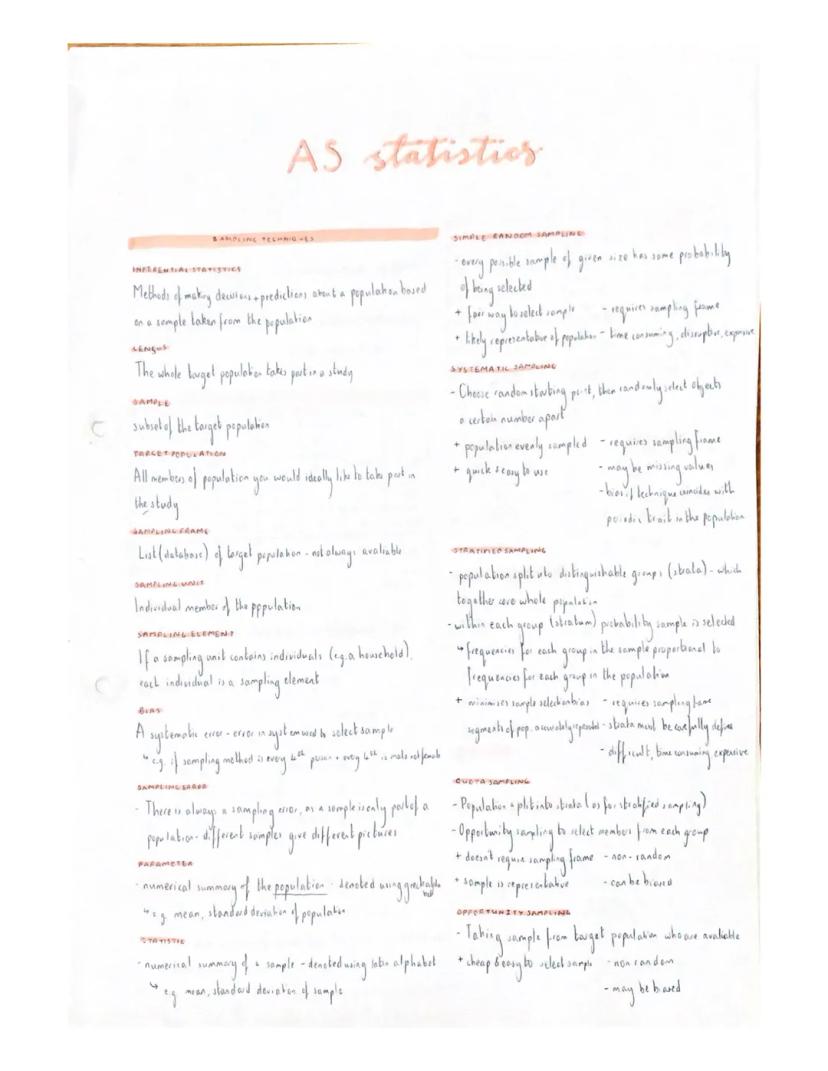 AS statistics
SAMPLING TECHNIQUES
INFERENTIAL STATISTICS
Methods of making decisions + predictions about a population based
on a sample taken from the population
CENSUS
The whole target population takes part in a study
SAMPLE
subset of the target population
TARGET POPULATION
All members of population you would ideally like to take part in
the study
SAMPLING FRAME
List (database) of target population - not always avaliable
SAMPLING UNIT
Individual member of the population
SAMPLING ELEMENT
If a sampling unit contains individuals (e.g. a household),
each individual is a sampling element
BIAS
A systematic error - error in system used to select sample
↳ e.g. if sampling method is every 4th person + every 4th is male not female
SAMPLING ERROR
- There is always a sampling error, as a sample is only part of a
population - different samples give different pictures
PARAMETER
- numerical summary of the population - denoted using greek
↳ e.g. mean, standard deviation of population
STATISTIC
- numerical summary of a sample - denoted using latin alphabet
↳ e.g. mean, standard deviation of sample
SIMPLE RANDOM SAMPLING
- every possible sample of given size has same probability
of being selected
+ fair way to select sample - requires sampling frame
+ likely representative of population - time consuming, disruptive, expensive
SYSTEMATIC SAMPLING
- Choose random starting point, then randomly select objects
a certain number apart
+ population evenly sampled - requires sampling frame
+ quick & easy to use - may be missing values
- bias if technique coincides with
periodic trait in the population
STRATIFIED SAMPLING
- population split into distinguishable groups (strata) - which
together cove whole population
- within each group (stratum) probability sample is selected
↳ frequencies for each group in the sample proportional to
frequencies for each group in the population
+ minimises sample selection bias - requires sampling frame
segments of pop. accurately - strata must be carefully define
- difficult, time consuming expensive
QUOTA SAMPLING
- Population split into strata (as for stratified sampling)
- Opportunity sampling to select members from each group
+ doesn't require sampling frame - non-random
+ sample is representative - can be biased
OPPORTUNITY SAMPLING
- Taking sample from target population who are avaliable
+ cheap & easy to select sample - non random
- may be biased